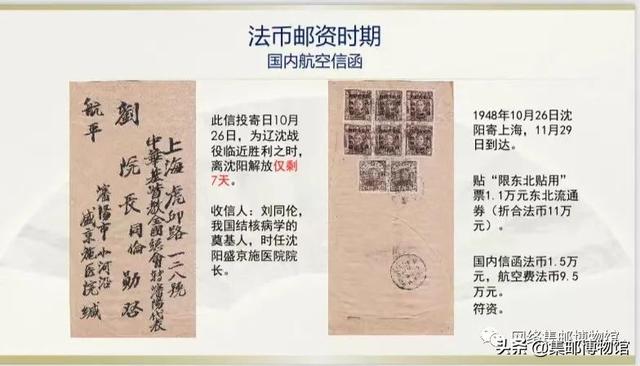 法币邮资时期
国内航空信函
上海虎邱路一二八號
中華基督教會全國總會轉瀋陽代表
劉院長同倫勛啓
航平
瀋陽市小河沿
盛京施医院緘
此信投寄日10月
26日，为辽沈战
役临近胜利之时，
离沈阳解放仅剩
7天。
收信人：刘同伦，
我国结核病学的
奠基人，时任沈
阳盛京施医院院
长。
1948年10月26日沈
阳寄上海，11月29
日到达。
贴“限东北贴用”
票1.1万元东北流通
券（折合法币11万
元）。
国内信函法币1.5万
元，航空费法币9.5
万元。
符资。
网络集邮博物馆
头条@集邮博物馆